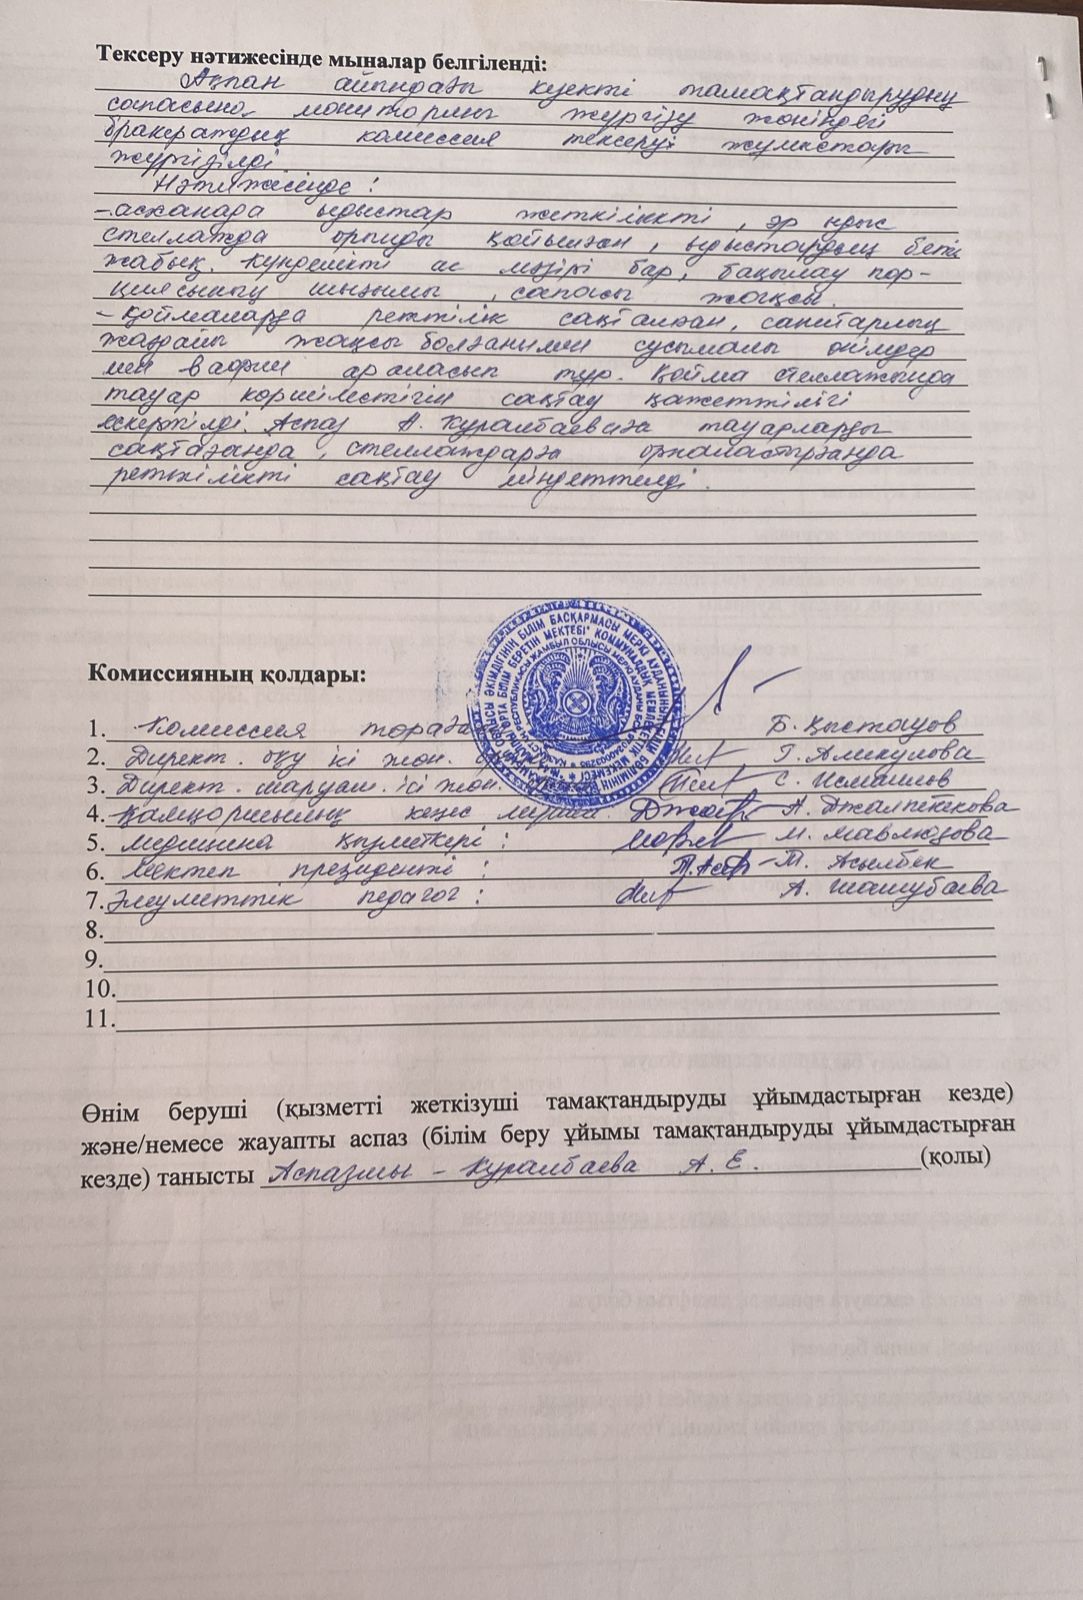 Тексеру нәтижесінде мыналар белгіленді:
Ақпан айындағы күекті тамақтандырудың
сапасына мониторинг жүргізу жөніндегі
бракераждық комиссия тексеруі жұмыстары
жүргізілді.
Нәтижесінде:
- асханада ыдыстар жеткілікті, әр ыдыс
стеллажда орнында қойылған, ыдыстардың беті
жабық. Күнделікті ас мәзірі бар, бақылау пор-
циясының шығымы, сапасы жақсы.
- Қоймаларда реттілік сақталған, санитарлық
жағдайы жақсы болғанымен сусымалы өнімдер
мен вафли араласып тұр. Қойма стеллажында
тауар көршілестігін сақтау қажеттілігі
ескертілді. Аспаз А. Куралбаеваға тауарларды
сақтағанда, стеллаждарға орналастырғанда
реттілікті сақтау міндеттелді.
Комиссияның қолдары:
1. Комиссия төраға Б. Қыстауов
2. Директ. оқу ісі жөн. Г. Аликулова
3. Директ. шаруаш. ісі жөн. С. Исмаилов
4. Қамқоршылық кеңес мүшесі. А. Джалпекекова
5. Медицина қызметкері: М. Мавлюдова
6. Мектеп президенті: Т. Асылбек
7. Әлеуметтік педагог: А. Шашубаева
8.
9.
10.
11.
Өнім беруші (қызметті жеткізуші тамақтандыруды ұйымдастырған кезде)
және/немесе жауапты аспаз (білім беру ұйымы тамақтандыруды ұйымдастырған
кезде) танысты Аспазшы - Куралбаева А. Е. (қолы)